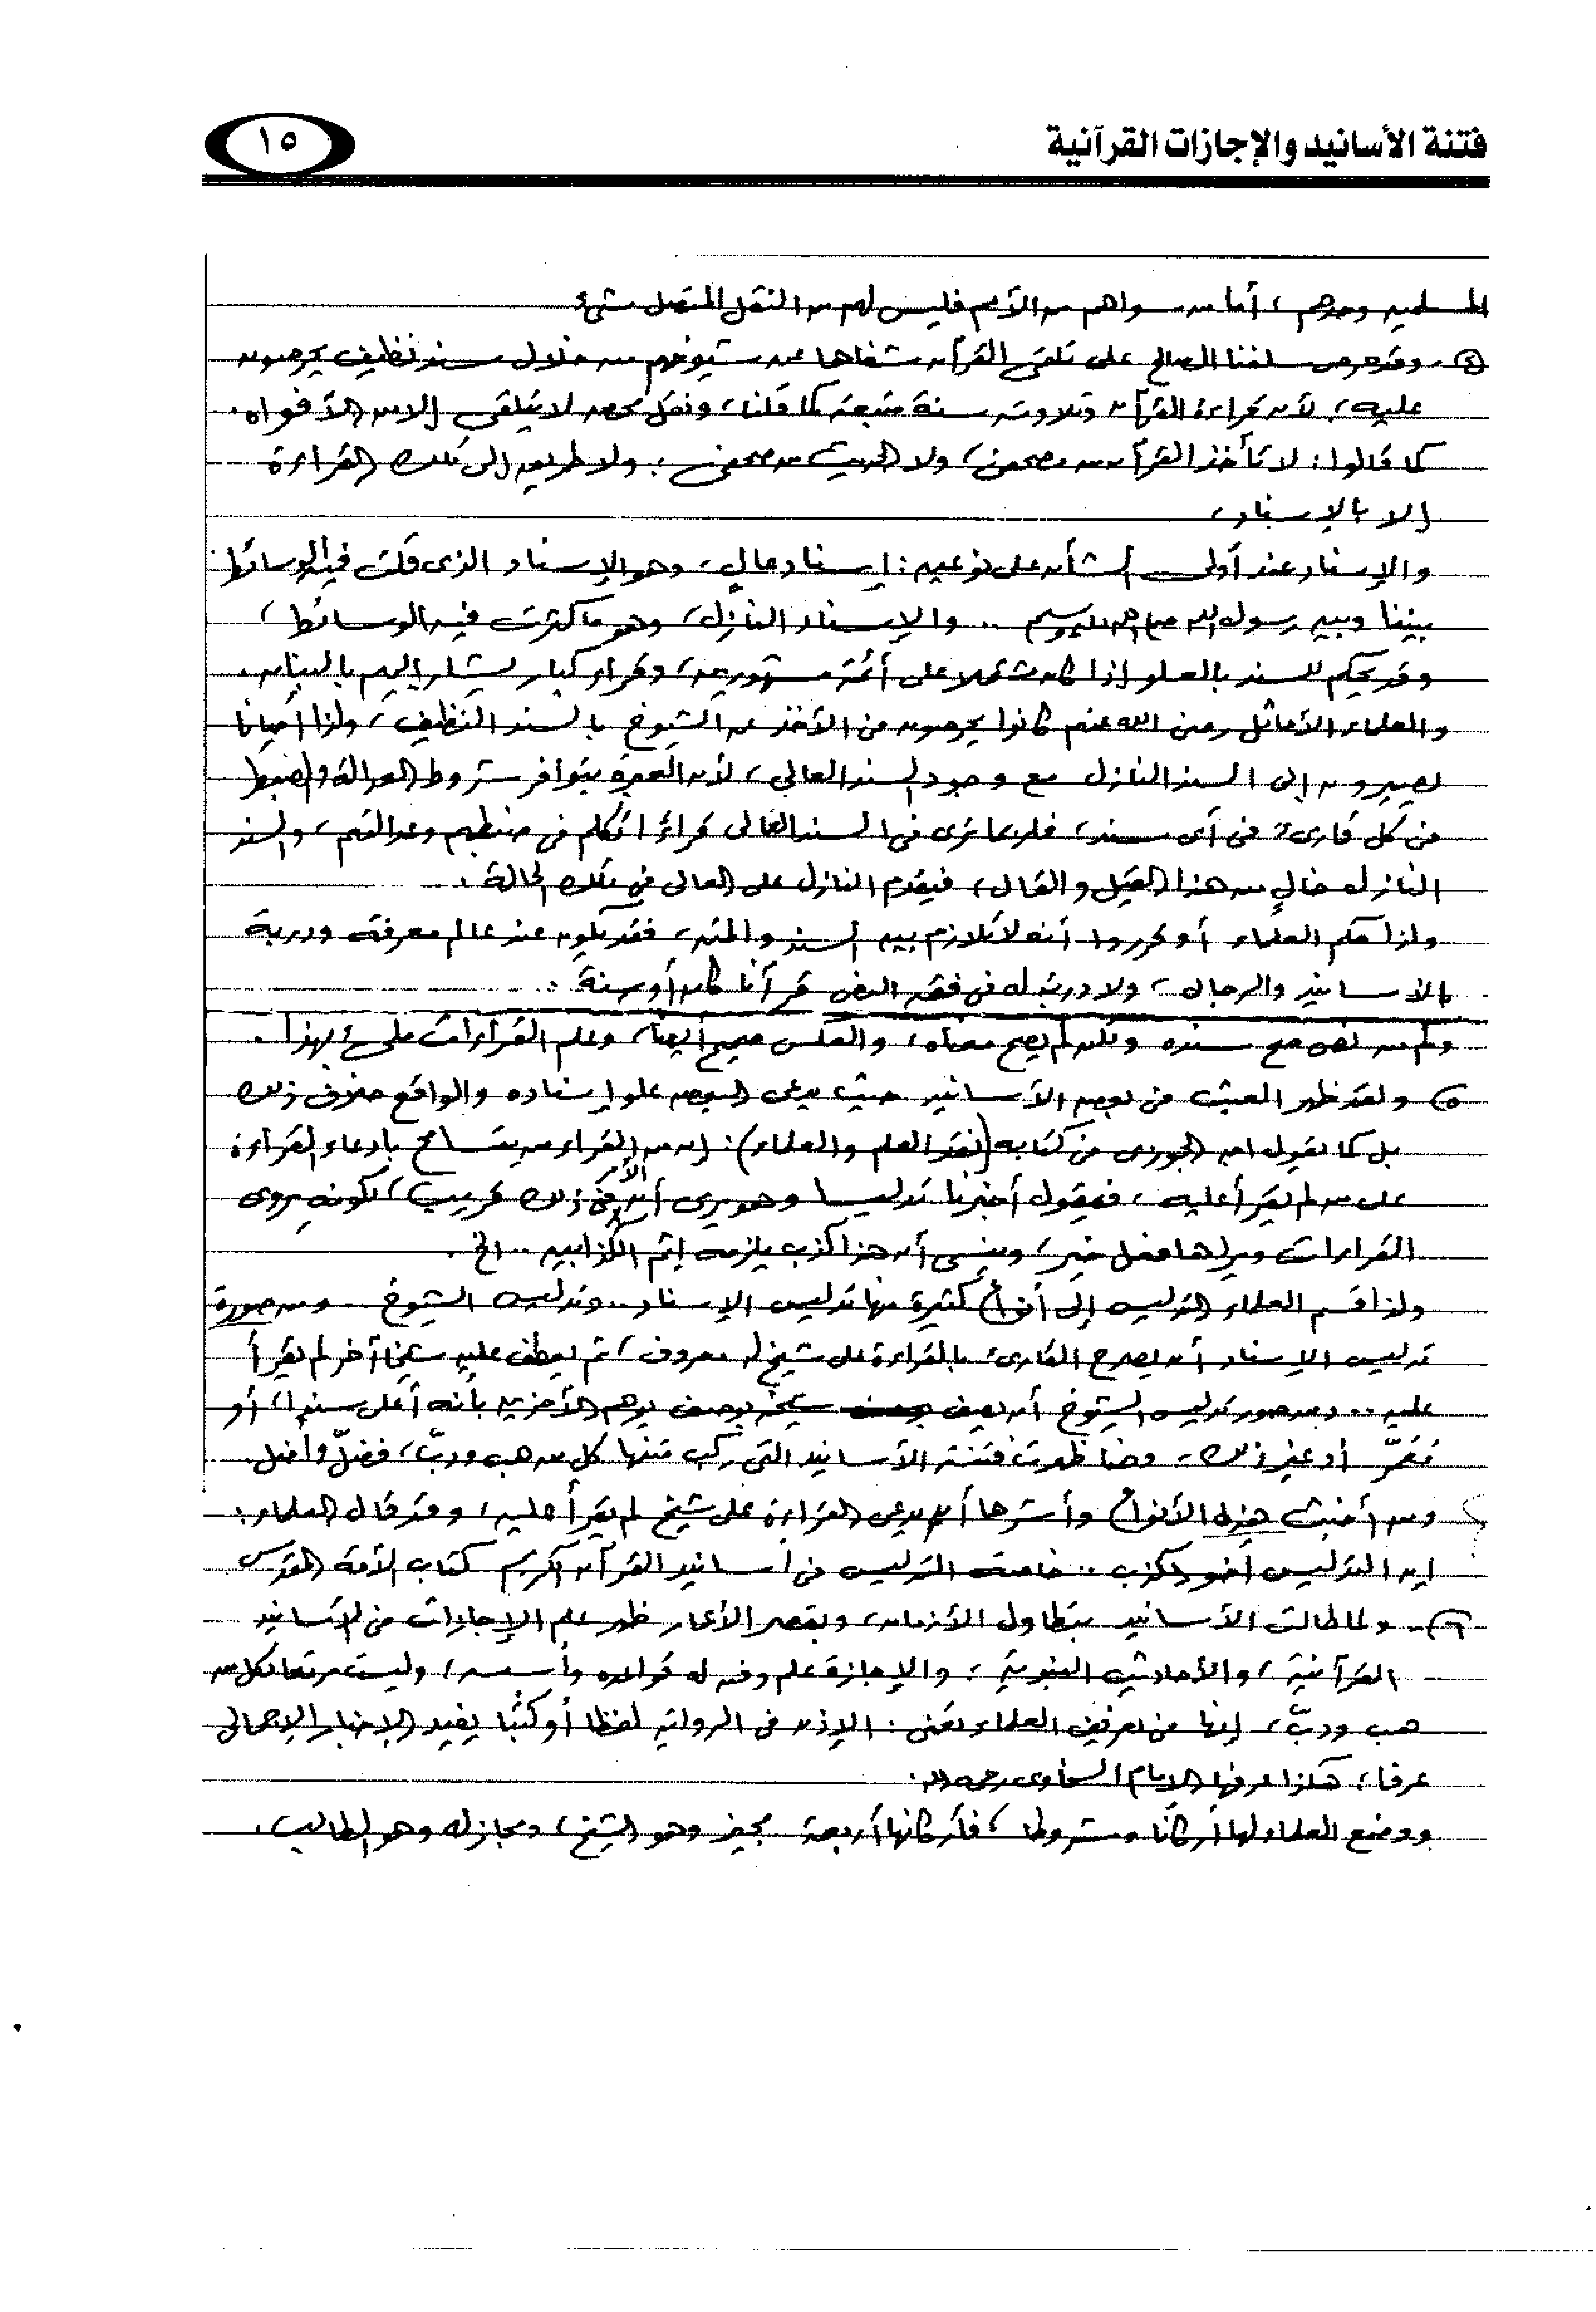 فتنة الأسانيد والإجازات القرآنية
١٥
المسلمين وحدهم، أما من سواهم من الأمم فليس لهم من النقل المتصل شيء
٤- وقد حرص سلفنا الصالح على تلقي القرآن شفاها عن شيوخهم من خلال سند نظيف يحرصون
عليه، لأن قراءة القرآن وتلاوته سنة متبعة كما قلنا، ونقل محض لا يتلقى إلا من الأفواه.
كما قالوا: لا تأخذ القرآن من مصحفي، ولا الحديث من صحفي، ولا طريق إلى تلك القراءة
إلا بالإسناد،
والإسناد عند أولى الشأن على نوعين: إسناد عالٍ، وهو الإسناد الذي قلت فيه الوسائط
بيننا وبين رسول الله صلى الله عليه وسلم .. والإسناد النازل، وهو ما كثرت فيه الوسائط،
وقد يحكم للسند بالعلو إذا كان مشتملا على أئمة مشهورين، وقراء كبار يشار إليهم بالبنان.
والعلماء الأماثل رضى الله عنهم كانوا يحرصون فى الأخذ عن الشيوخ بالسند النظيف، ولذا أحيانا
يصيرون إلى السند النازل مع وجود السند العالي، لأن العبرة بتوافر شروط العدالة والضبط
فى كل قارئ فى أى سند، فلربما ترى فى السند العالى قراءً اتكلم فى ضبطهم وعدالتهم، والسند
النازل خالٍ من هذا القيل والقال، فيقدم النازل على العالى فى تلك الحالة.
ولذا حكم العلماء أو قرروا أنه لا تلازم بين السند والمتن، فقد يكون عند عالم معرفة ودربة
بالأسانيد والرجال، ولا دربة له فى فقه النص قرآنا كان أو سنة.
وكم من نص صح سنده ولكن لم يصح معناه، والعكس صحيح أيضا، وعلم القراءات ملىء بهذا.
٥- ولقد ظهر العبث فى بعض الأسانيد حيث يدعى البعض علو إسناده والواقع خلاف ذلك
بل كما يقول ابن الجوزى فى كتابه (نقد العلم والعلماء): إن من القراء من يتسامح بادعاء القراءة
على من لم يقرأ عليه، فيقول أخبرنا تدليسا وهو يرى أن الأمر فى ذلك قريب، لكونه يروى
القراءات ويراها فعل خير، وينسى أن هذا كذب يلزمه إثم الكذابين .. الخ.
ولذا قسم العلماء التدليس إلى أنواع كثيرة منها تدليس الإسناد .. وتدليس الشيوخ ومن صورة
تدليس الإسناد أن يصرح القارئ بالقراءة على شيخ له معروف، ثم يعطف عليه شيخا آخر لم يقرأ
عليه .. ومن صور تدليس الشيوخ أن يصف شيخه بوصف يوهم الآخرين بأنه أعلى سندا، أو
مُعَمَّر أو غير ذلك، وهنا ظهرت فتنة الأسانيد التى ركب متنها كل من هب ودبّ، فضلّ وأضل.
ومن أخبث هذه الأنواع وأشرها أن يدعى القراءة على شيخ لم يقرأ عليه، وقد قال العلماء:
إن التدليس أخو الكذب .. خاصة التدليس فى أسانيد القرآن الكريم كتاب الأمة المقدس
٦- ولما طالت الأسانيد بتطاول الأزمان، وبقصر الأعمار ظهر علم الإجازات فى الأسانيد
القرآنية، والأحاديث النبوية، والإجازة علم وفن له قواعده وأسسه، وليست مرتعا لكل من
هب ودبّ، إنها فى تعريف العلماء تعنى: الإذن فى الرواية لفظا أو كتبًا يفيد الإخبار الإجمالى
عرفا، هكذا عرفها الإمام السخاوى رحمه الله.
ووضع العلماء لها أركانًا وشروطا، فأركانها أربعة مجيز وهو الشيخ، ومجاز له وهو الطالب،